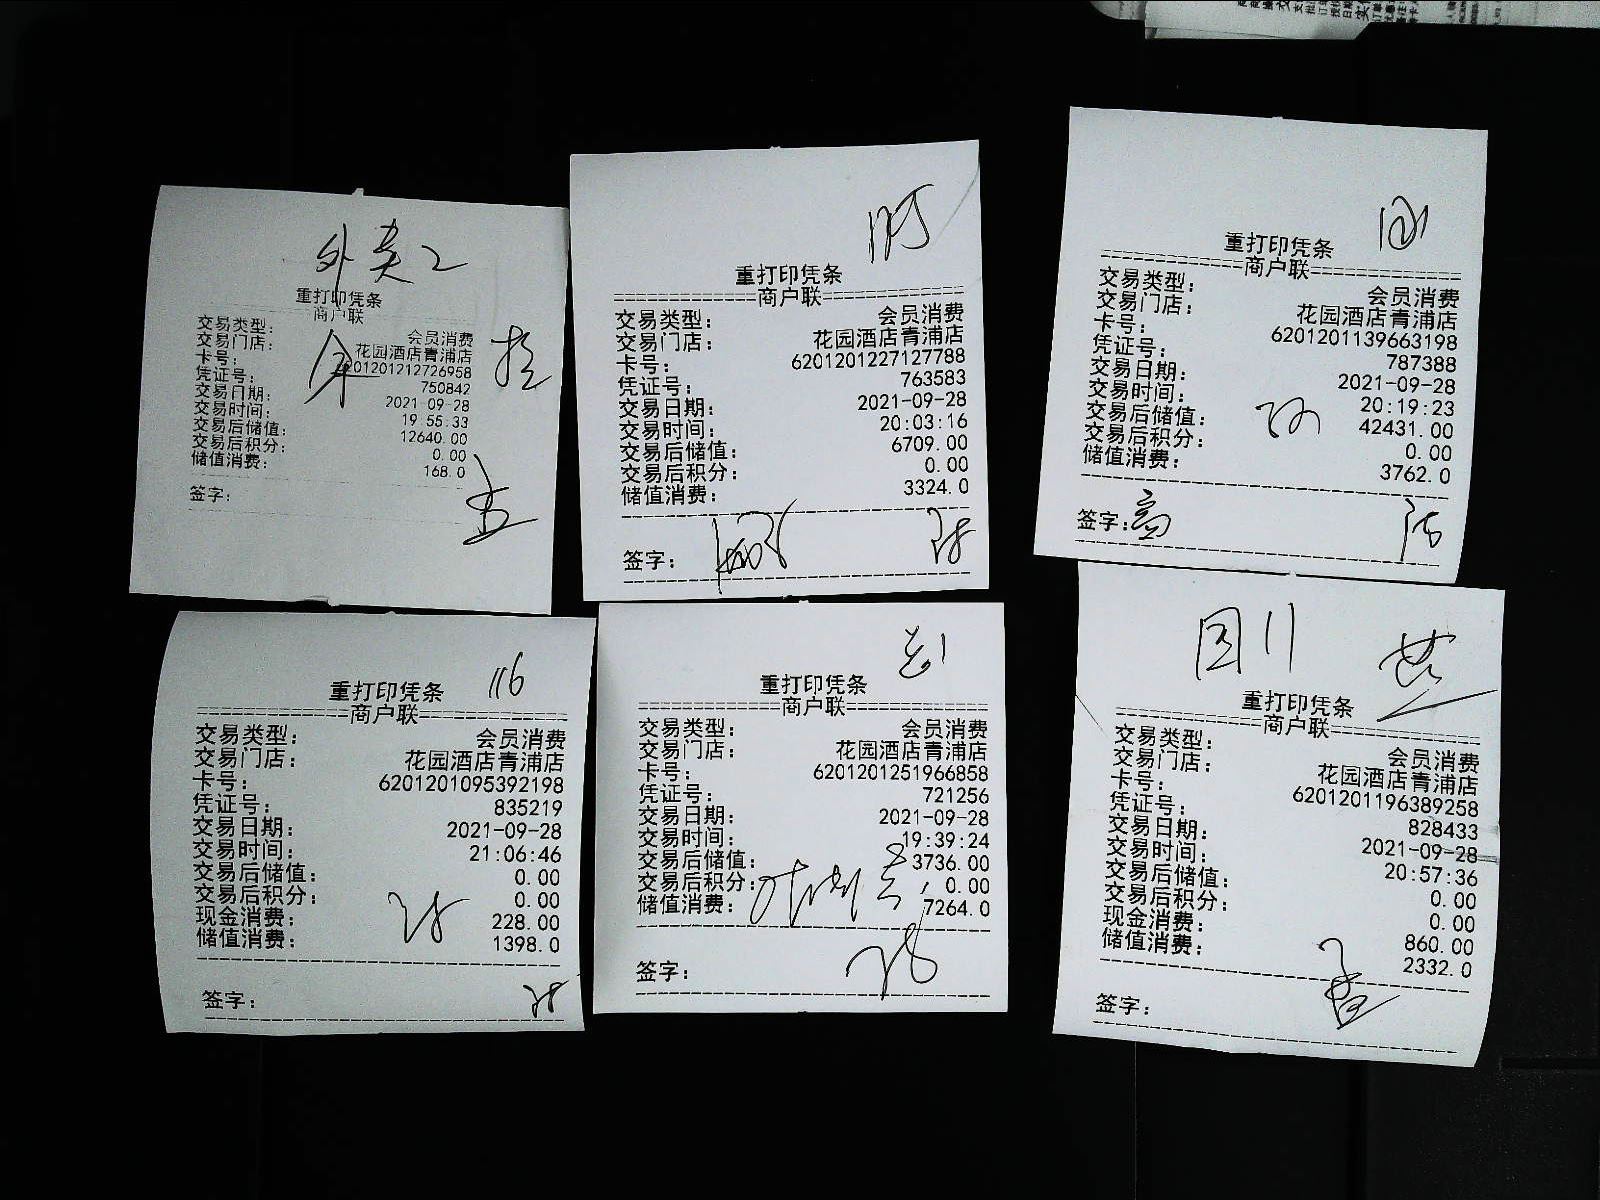 外卖2
重打印凭条
商户联
交易类型: 会员消费
交易门店: 花园酒店青浦店
卡号: 201201212726958
凭证号: 750842
交易日期: 2021-09-28
交易时间: 19:55:33
交易后储值: 12640.00
交易后积分: 0.00
储值消费: 168.0
签字:
重打印凭条
商户联
交易类型: 会员消费
交易门店: 花园酒店青浦店
卡号: 6201201227127788
凭证号: 763583
交易日期: 2021-09-28
交易时间: 20:03:16
交易后储值: 6709.00
交易后积分: 0.00
储值消费: 3324.0
签字:
重打印凭条
商户联
交易类型: 会员消费
交易门店: 花园酒店青浦店
卡号: 6201201139663198
凭证号: 787388
交易日期: 2021-09-28
交易时间: 20:19:23
交易后储值: 42431.00
交易后积分: 0.00
储值消费: 3762.0
签字:
116
重打印凭条
商户联
交易类型: 会员消费
交易门店: 花园酒店青浦店
卡号: 6201201095392198
凭证号: 835219
交易日期: 2021-09-28
交易时间: 21:06:46
交易后储值: 0.00
交易后积分: 0.00
现金消费: 228.00
储值消费: 1398.0
签字:
重打印凭条
商户联
交易类型: 会员消费
交易门店: 花园酒店青浦店
卡号: 6201201251966858
凭证号: 721256
交易日期: 2021-09-28
交易时间: 19:39:24
交易后储值: 3736.00
交易后积分: 0.00
储值消费: 7264.0
签字:
重打印凭条
商户联
交易类型: 会员消费
交易门店: 花园酒店青浦店
卡号: 6201201196389258
凭证号: 828433
交易日期: 2021-09-28
交易时间: 20:57:36
交易后储值: 0.00
交易后积分: 0.00
现金消费: 860.00
储值消费: 2332.0
签字: